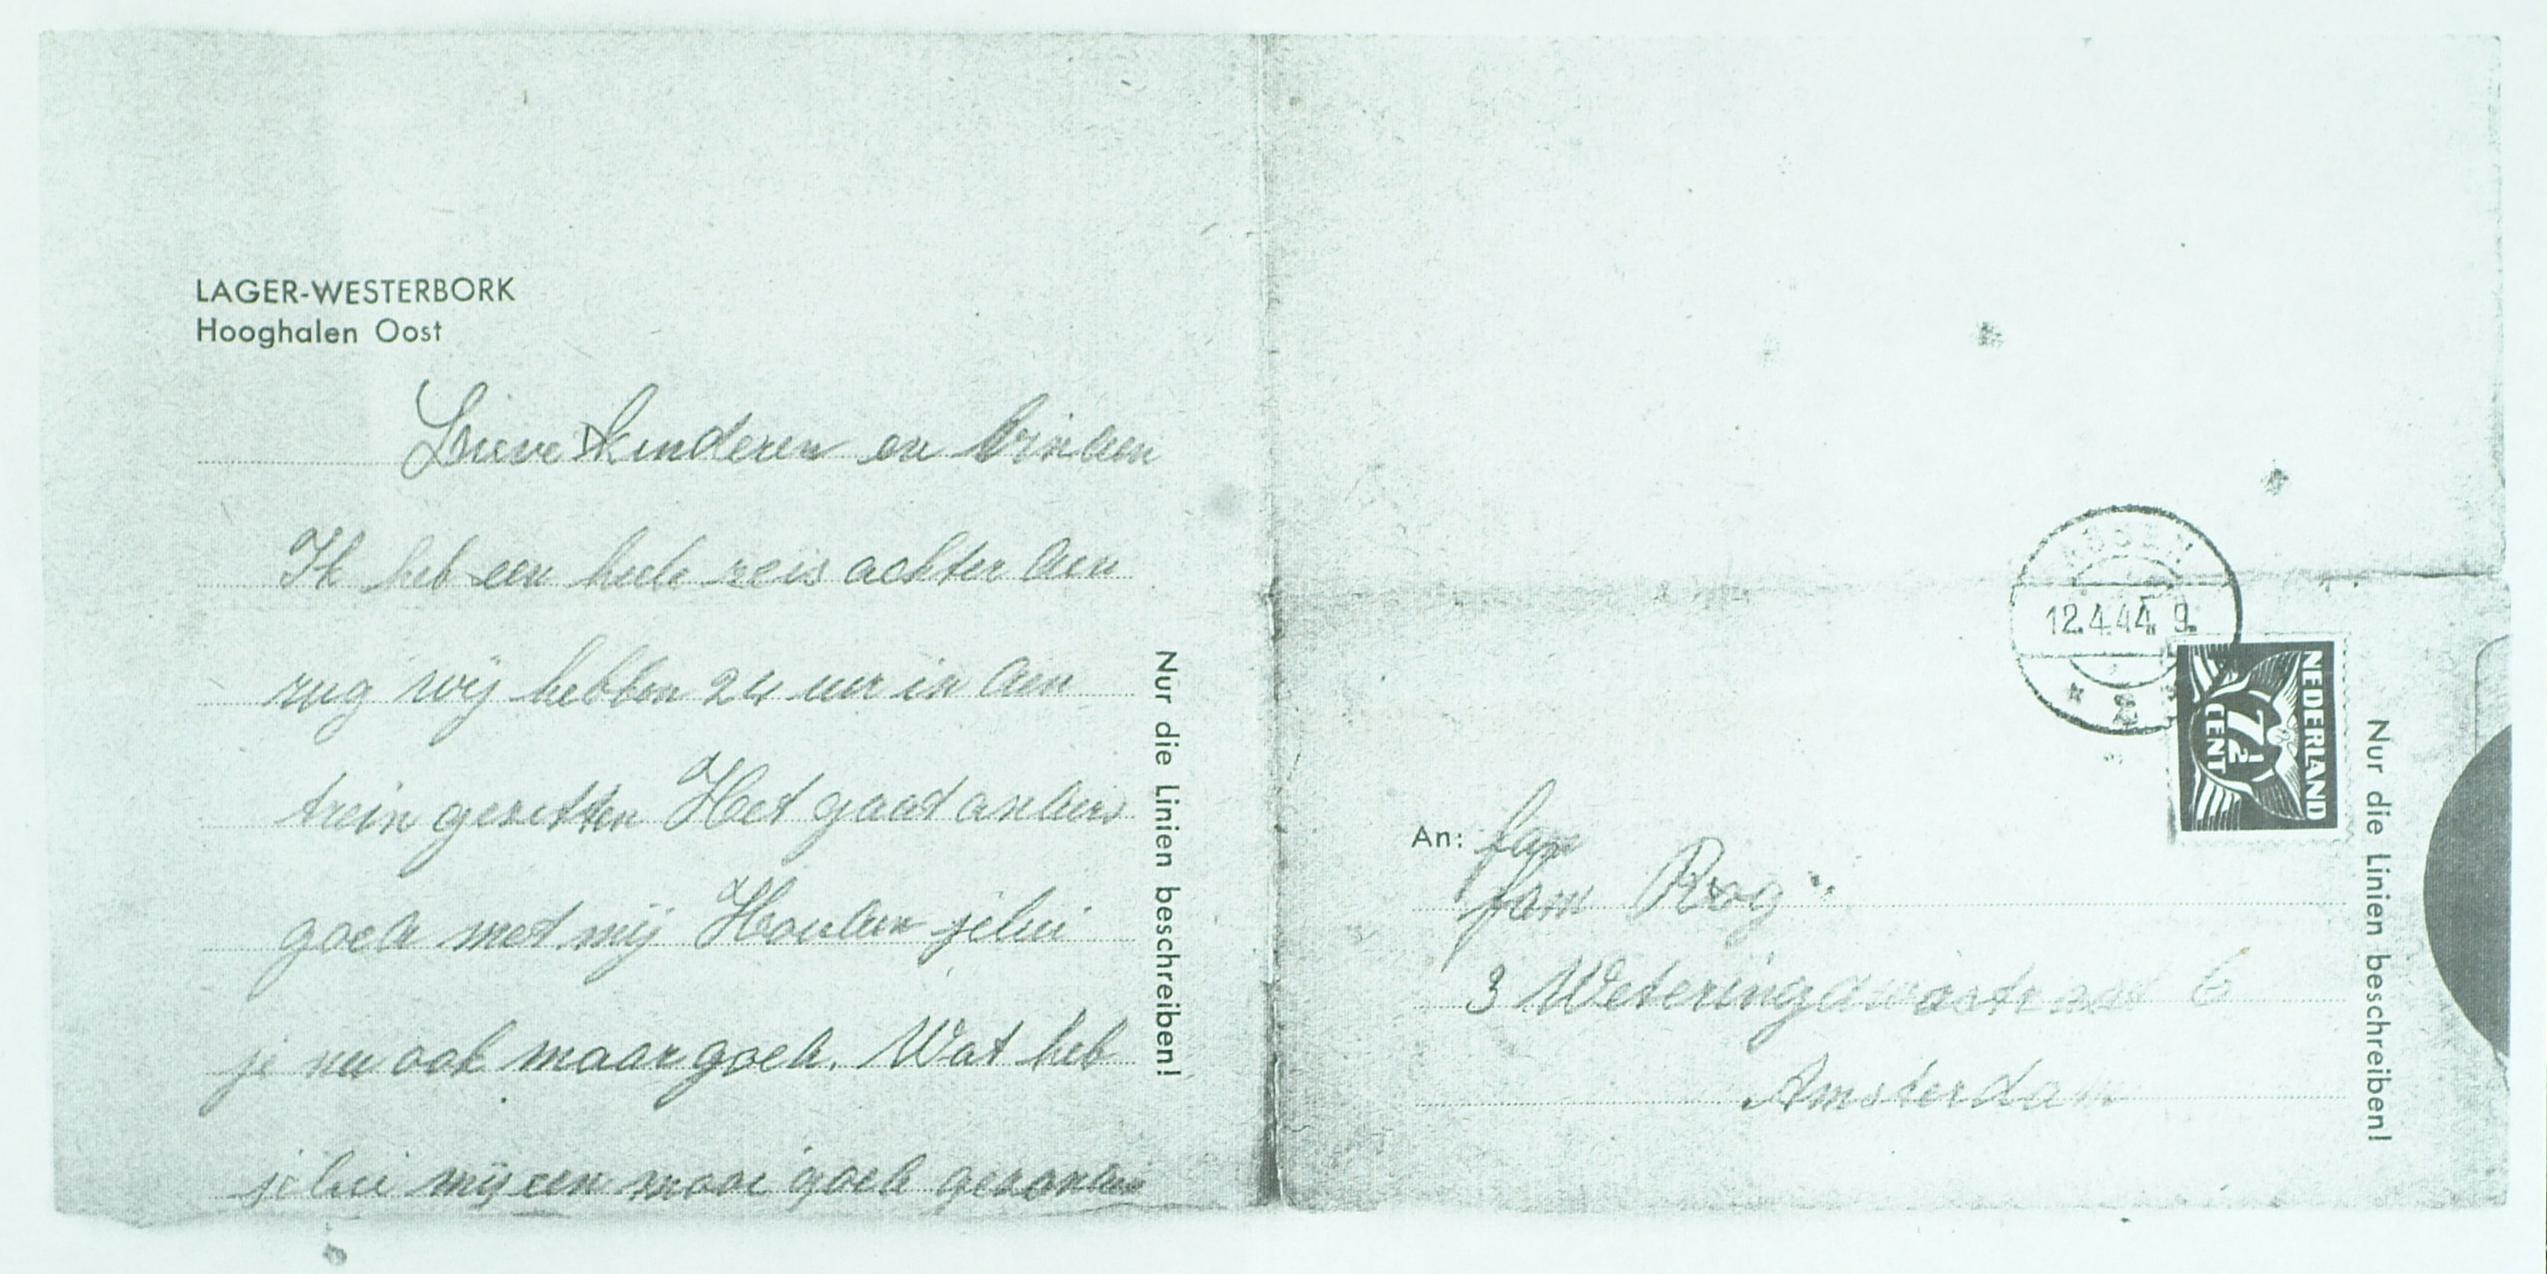 LAGER-WESTERBORK
Hooghalen Oost
Lieve kinderen en
Ik heb een hele reis achter den
rug wij hebben 24 uur in den
trein gezetten Het gaat anders
goed met mij Houden jelui
je nu ook maar goed. Wat heb
jelui mij een mooi goed gezonden
Nur die Linien beschreiben!
ASSEN
12.4.44. 9.
NEDERLAND
7½
CENT
An: fam
fam Rog
3 Weteringdwarstraat 6
Amsterdam
Nur die Linien beschreiben!